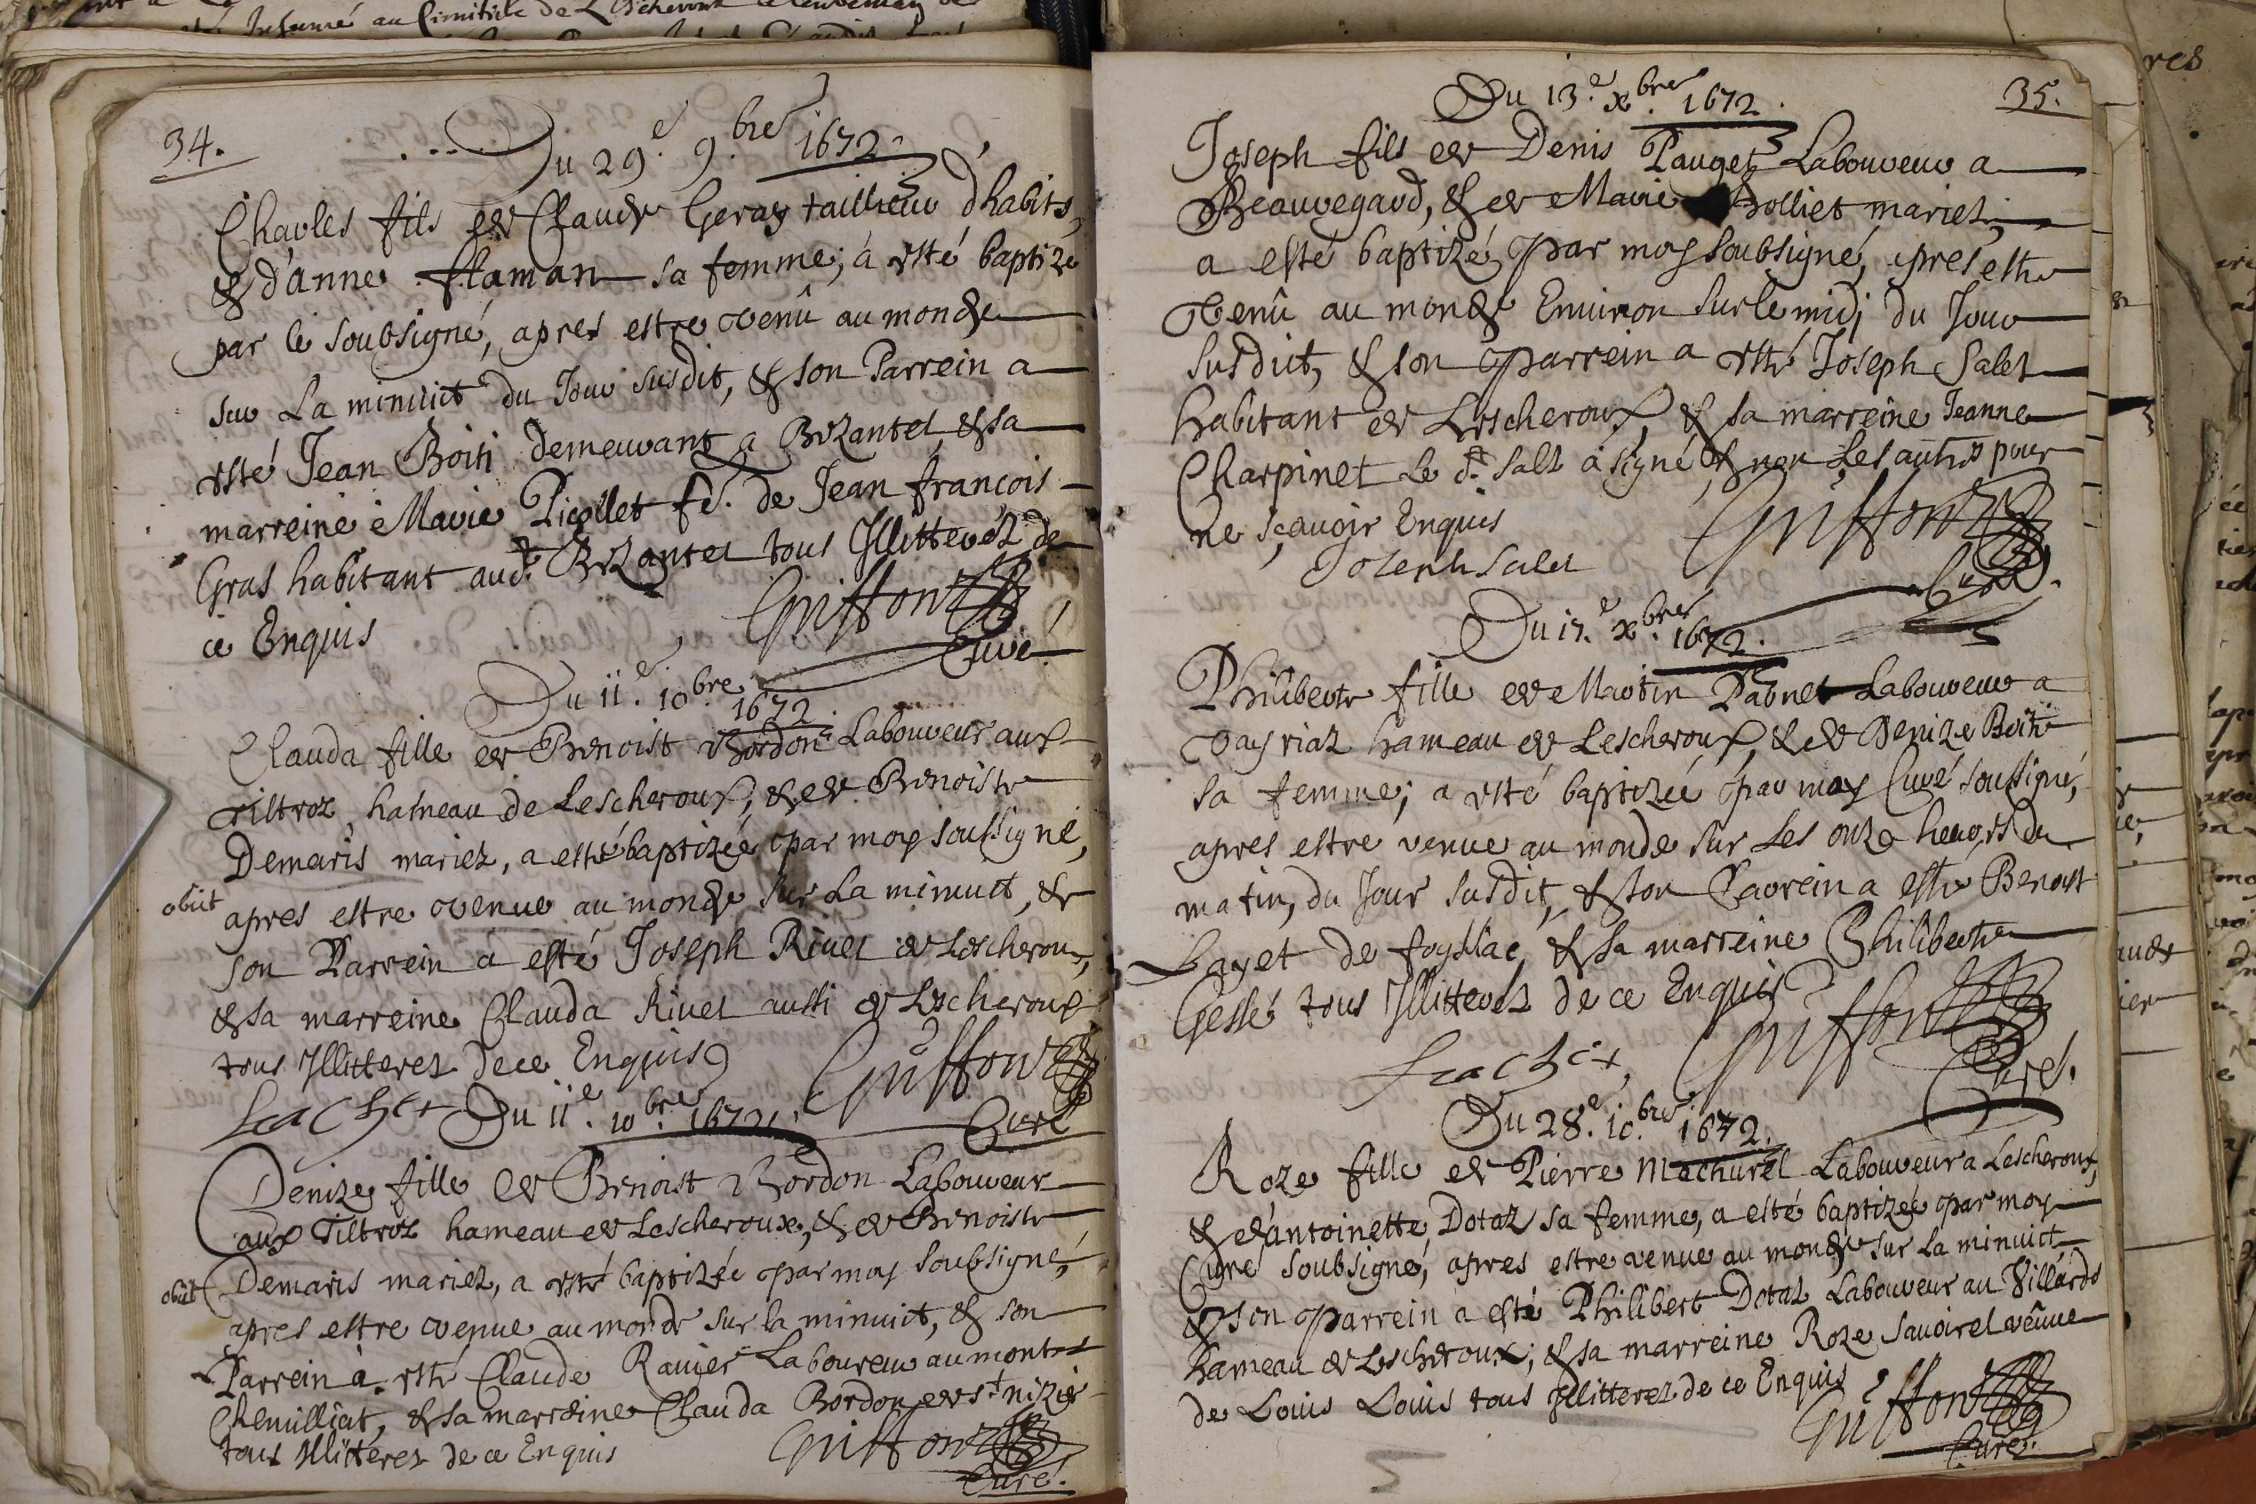 Infumé au Cimitiele de Lescheroux
34.
Du 29e. 9.bre 1672.
Charles fils de Claude Geray taillieur d'habits,
& d'anne flaman sa femme; á esté baptizé
par le soubsigné, apres estre venû au monde
sur La minuict du Jour susdit, & son Parrein a
esté Jean Boiti demeurant a Bezantet, & sa
marreine Marie Picollet fe. de Jean françois
Gras habitant aud.t Bezantet tous Illitterez de
ce Enquis
Griffon
Curé.
Du 11e. 10.bre 1672.
Clauda fille de Benoist Bordon Laboureur aux
Tiltroz hameau de Lescheroux, & de Benoiste
Demaris mariez, a esté baptizée par moy soussigné,
obiit
apres estre venue au monde sur la minuict, &
son Parrein á esté Joseph Rivet de Lescheroux,
& sa marreine Clauda Rivet aussi de Lescheroux
tous Illitterez de ce Enquis
Griffon
Curé
Du 11e. 10.bre 1672.
Denize fille de Benoist Bordon Laboureur
aux Tiltroz hameau de Lescheroux, & de Benoiste
obiit
Demaris mariez, a esté baptizée par moy soubsigné,
apres estre venue au monde sur la minuict, & son
Parrein á esté Claude Ravier Laboureur au montet
Chemilliat, & sa marreine Clauda Bordon de st nizier
tous Illitterez de ce Enquis
Griffon
Curé.
35.
Du 13.e xbre 1672.
Joseph fils de Denis Pauget Laboureur a
Beauregard, & de Marie holliet mariez,
a esté baptizé par moy soubsigné, apres estre
venû au monde Environ sur le midi du Jour
susdict, & son parrein a esté Joseph Salet
habitant de Lescheroux, & sa marreine Jeanne
Charpinet Le d.t Salet á signé & non Les autres pour
ne sçauoir Enquis
Griffon
Joseph Salet
Curé.
Du 17.e xbre 1672.
Philiberte fille de Martin Pabnet Laboureur a
Vayriaz hameau de Lescheroux, & de Denize Boiti
sa femme; a esté baptizée par moy Curé soussigné,
apres estre venue au monde sur Les onze heures du
matin, du Jour susdit, & son Parrein a esté Benoist
Layet de foyssiac, & sa marreine Philiberte
Gessé tous Illitterez de ce Enquis
Griffon
Curé.
Du 28e. 10.bre 1672.
Roze fille de Pierre Machurel Laboureur a Lescheroux,
& d'antoinette Dotaz sa femme, a esté baptizée par moy
Curé soubsigné, apres estre venue au monde sur la minuict,
& son parrein a esté Philibert Dotaz Laboureur au Villards
hameau de Lescheroux; & sa marreine Roze Savoirel veûve
de Louis Louis tous Illitterez de ce Enquis
Griffon
Curé.